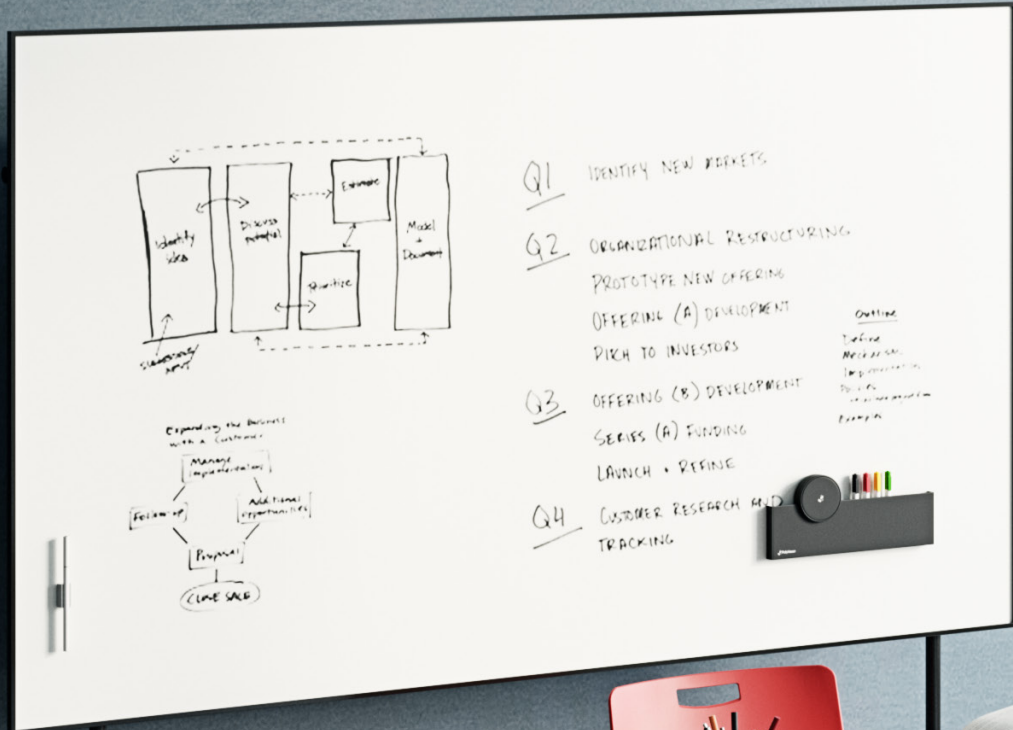 Estimate
Identify
idea
Discuss
potential
Model
+
Document
Prioritize
Expanding the Business
with a Customer
Manage
implementations
Follow-up
Additional
opportunities
Proposal
CLOSE SALE
Q1 IDENTIFY NEW MARKETS
Q2 ORGANIZATIONAL RESTRUCTURING
PROTOTYPE NEW OFFERING
OFFERING (A) DEVELOPMENT
PITCH TO INVESTORS
Q3 OFFERING (B) DEVELOPMENT
SERIES (A) FUNDING
LAUNCH + REFINE
Q4 CUSTOMER RESEARCH AND
TRACKING
Outline
Define
Mechanism
Implementation
Policies
Examples